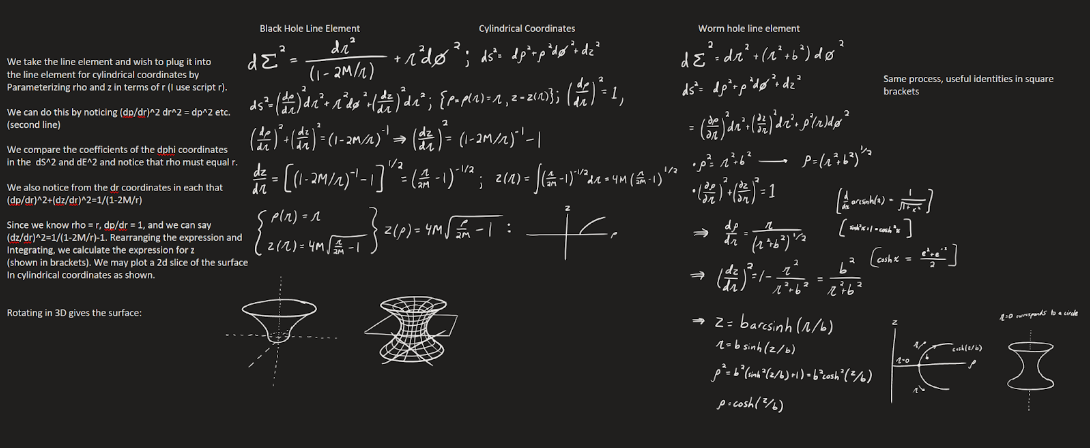 Black Hole Line Element
Cylindrical Coordinates
Worm hole line element
We take the line element and wish to plug it into
the line element for cylindrical coordinates by
Parameterizing rho and z in terms of r (I use script r).
We can do this by noticing (dp/dr)^2 dr^2 = dp^2 etc.
(second line)
We compare the coefficients of the dphi coordinates
in the dS^2 and dE^2 and notice that rho must equal r.
We also notice from the dr coordinates in each that
(dp/dr)^2+(dz/dr)^2=1/(1-2M/r)
Since we know rho = r, dp/dr = 1, and we can say
(dz/dr)^2=1/(1-2M/r)-1. Rearranging the expression and
Integrating, we calculate the expression for z
(shown in brackets). We may plot a 2d slice of the surface
In cylindrical coordinates as shown.
Rotating in 3D gives the surface:
dΣ² = dr²/(1-2M/r) + r²dø² ; ds² = dρ²+ρ²dø²+dz²
ds² = (dρ/dr)²dr²+r²dø²+(dz/dr)²dr² ; {ρ=ρ(r)=r, z=z(r)} ; (dρ/dr)² = 1,
(dρ/dr)²+(dz/dr)² = (1-2M/r)⁻¹ ⇒ (dz/dr)² = (1-2M/r)⁻¹-1
dz/dr = [(1-2M/r)⁻¹-1]^1/2 = (r/2M -1)^-1/2 ; z(r) = ∫(r/2M -1)^-1/2 dr = 4M(r/2M -1)^1/2
{ρ(r) = r
z(r) = 4M√(r/2M -1)} z(ρ) = 4M√(ρ/2M -1) :
z
ρ
dΣ² = dr²+(r²+b²)dø²
ds² = dρ²+ρ²dø²+dz²
= (∂ρ/∂r)²dr²+(∂z/∂r)²dr²+ρ²(r)dø²
• ρ² = r²+b² → ρ=(r²+b²)^1/2
• (∂ρ/∂r)²+(∂z/∂r)² = 1
⇒ dρ/dr = r/(r²+b²)^1/2
⇒ (dz/dr)² = 1- r²/(r²+b²) = b²/(r²+b²)
⇒ z = b arcsinh(r/b)
r = b sinh(z/b)
ρ² = b²(sinh²(z/b)+1) = b²cosh²(z/b)
ρ = cosh(z/b)
Same process, useful identities in square
brackets
[d/dx arcsinh(x) = 1/√(1+x²)]
[sinh²x+1 = cosh²x]
[cosh x = (eˣ+e⁻ˣ)/2]
z
r
cosh(z/b)
r=0
b
ρ
r
r=0 corresponds to a circle